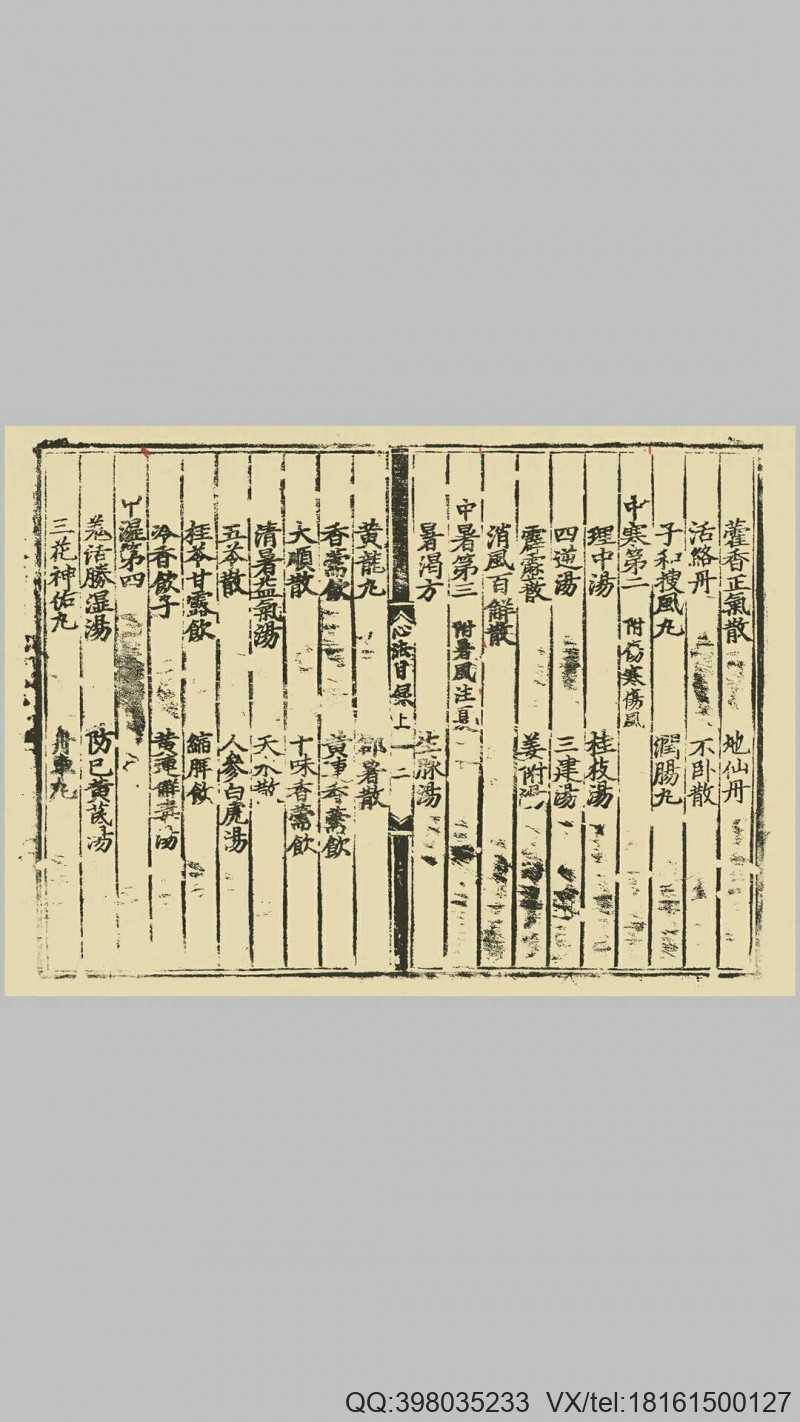 藿香正氣散 地仙丹
活絡丹 不卧散
子和搜風丸 潤腸丸
中寒第二 附傷寒傷風
理中湯 桂枝湯
四逆湯 三建湯
霹靂散 姜附湯
消風百解散
中暑第三 附暑風注夏
暑渴方 生脉湯
心法目録上 一 二
黄龍丸 却暑散
香薷飲 黄連香薷飲
大順散 十味香薷飲
清暑益氣湯 天水散
五苓散 人參白虎湯
桂苓甘露飲 縮脾飲
冷香飲子 黄連解毒湯
中濕第四
羗活勝湿湯 防已黄芪湯
三花神佑丸 舟車丸
QQ:398035233 VX/tel:18161500127